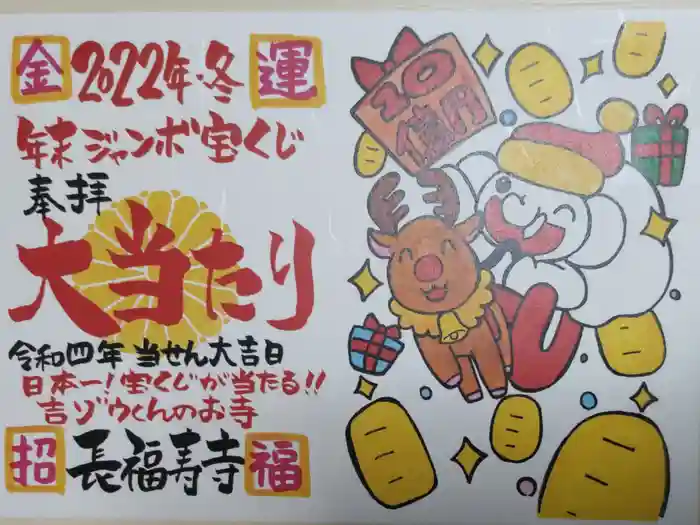 金 2022年・冬 運
年末ジャンボ宝くじ
奉拝
大当たり
令和四年 当せん大吉日
日本一!宝くじが当たる!!
吉ゾウくんのお寺
招 長福寿寺 福
10
億円